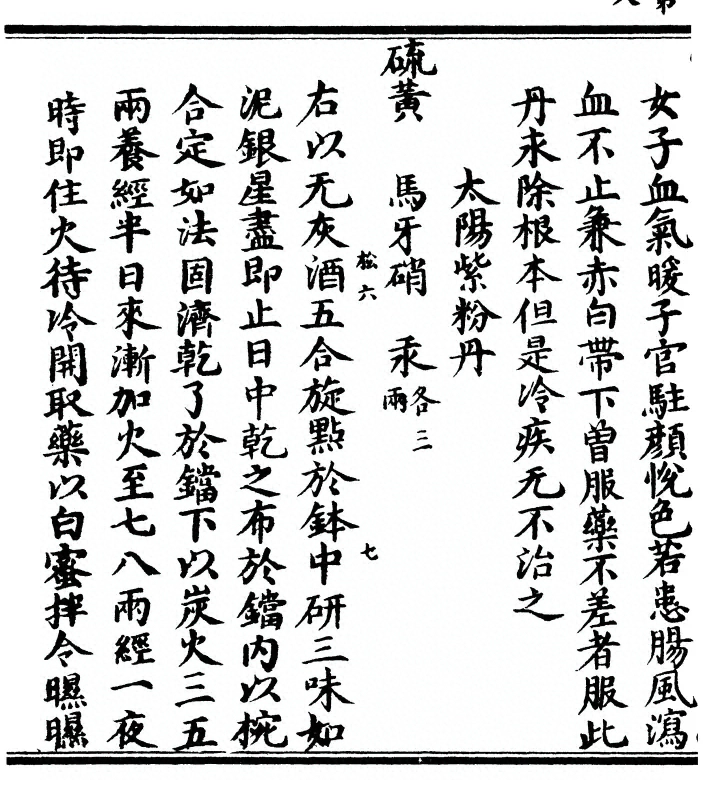 女子血氣暖子官駐顏悅色若患腸風瀉
血不止兼赤白帶下曽服藥不差者服此
丹永除根本但是冷疾无不治之
太陽紫粉丹
硫黃 馬牙硝 汞各三兩
右以无灰酒五合旋點於鉢中研三味如
松六
七
泥銀星盡即止日中乾之布於鐺內以椀
合定如法固濟乾了於鐺下以炭火三五
兩養經半日來漸加火至七八兩經一夜
時即住火待冷開取藥以白蜜拌令𣊟𣊟